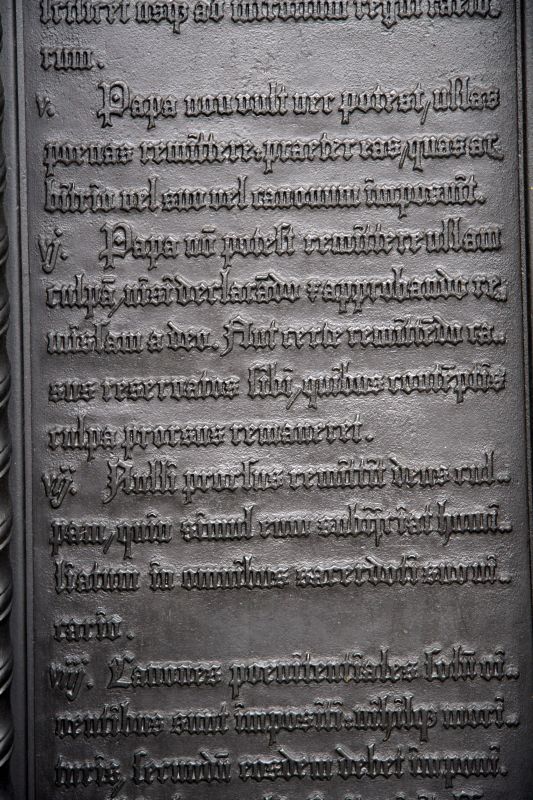 scilicet usq; ad introitum regni caelo.
rum.
v. Papa non vult nec potest, ullas
poenas remittere. praeter eas, quas ar.
bitrio vel suo vel canonum imposuit.
vj. Papa nō potest remittere ullam
culpā, nisi declarādo & approbando re.
missam a deo. Aut certe remittēdo ca..
sus reservatos sibi, quibus contēptis
culpa prorsus remaneret.
vij. Nulli prorsus remittit deus cul..
pam, quin simul eum subijciat humi..
liatum in omnibus sacerdoti suo vi..
cario.
viij. Canones poenitentiales solū vi..
ventibus sunt impositi. nihilq; mori..
turis, secundū eosdem debet imponi.